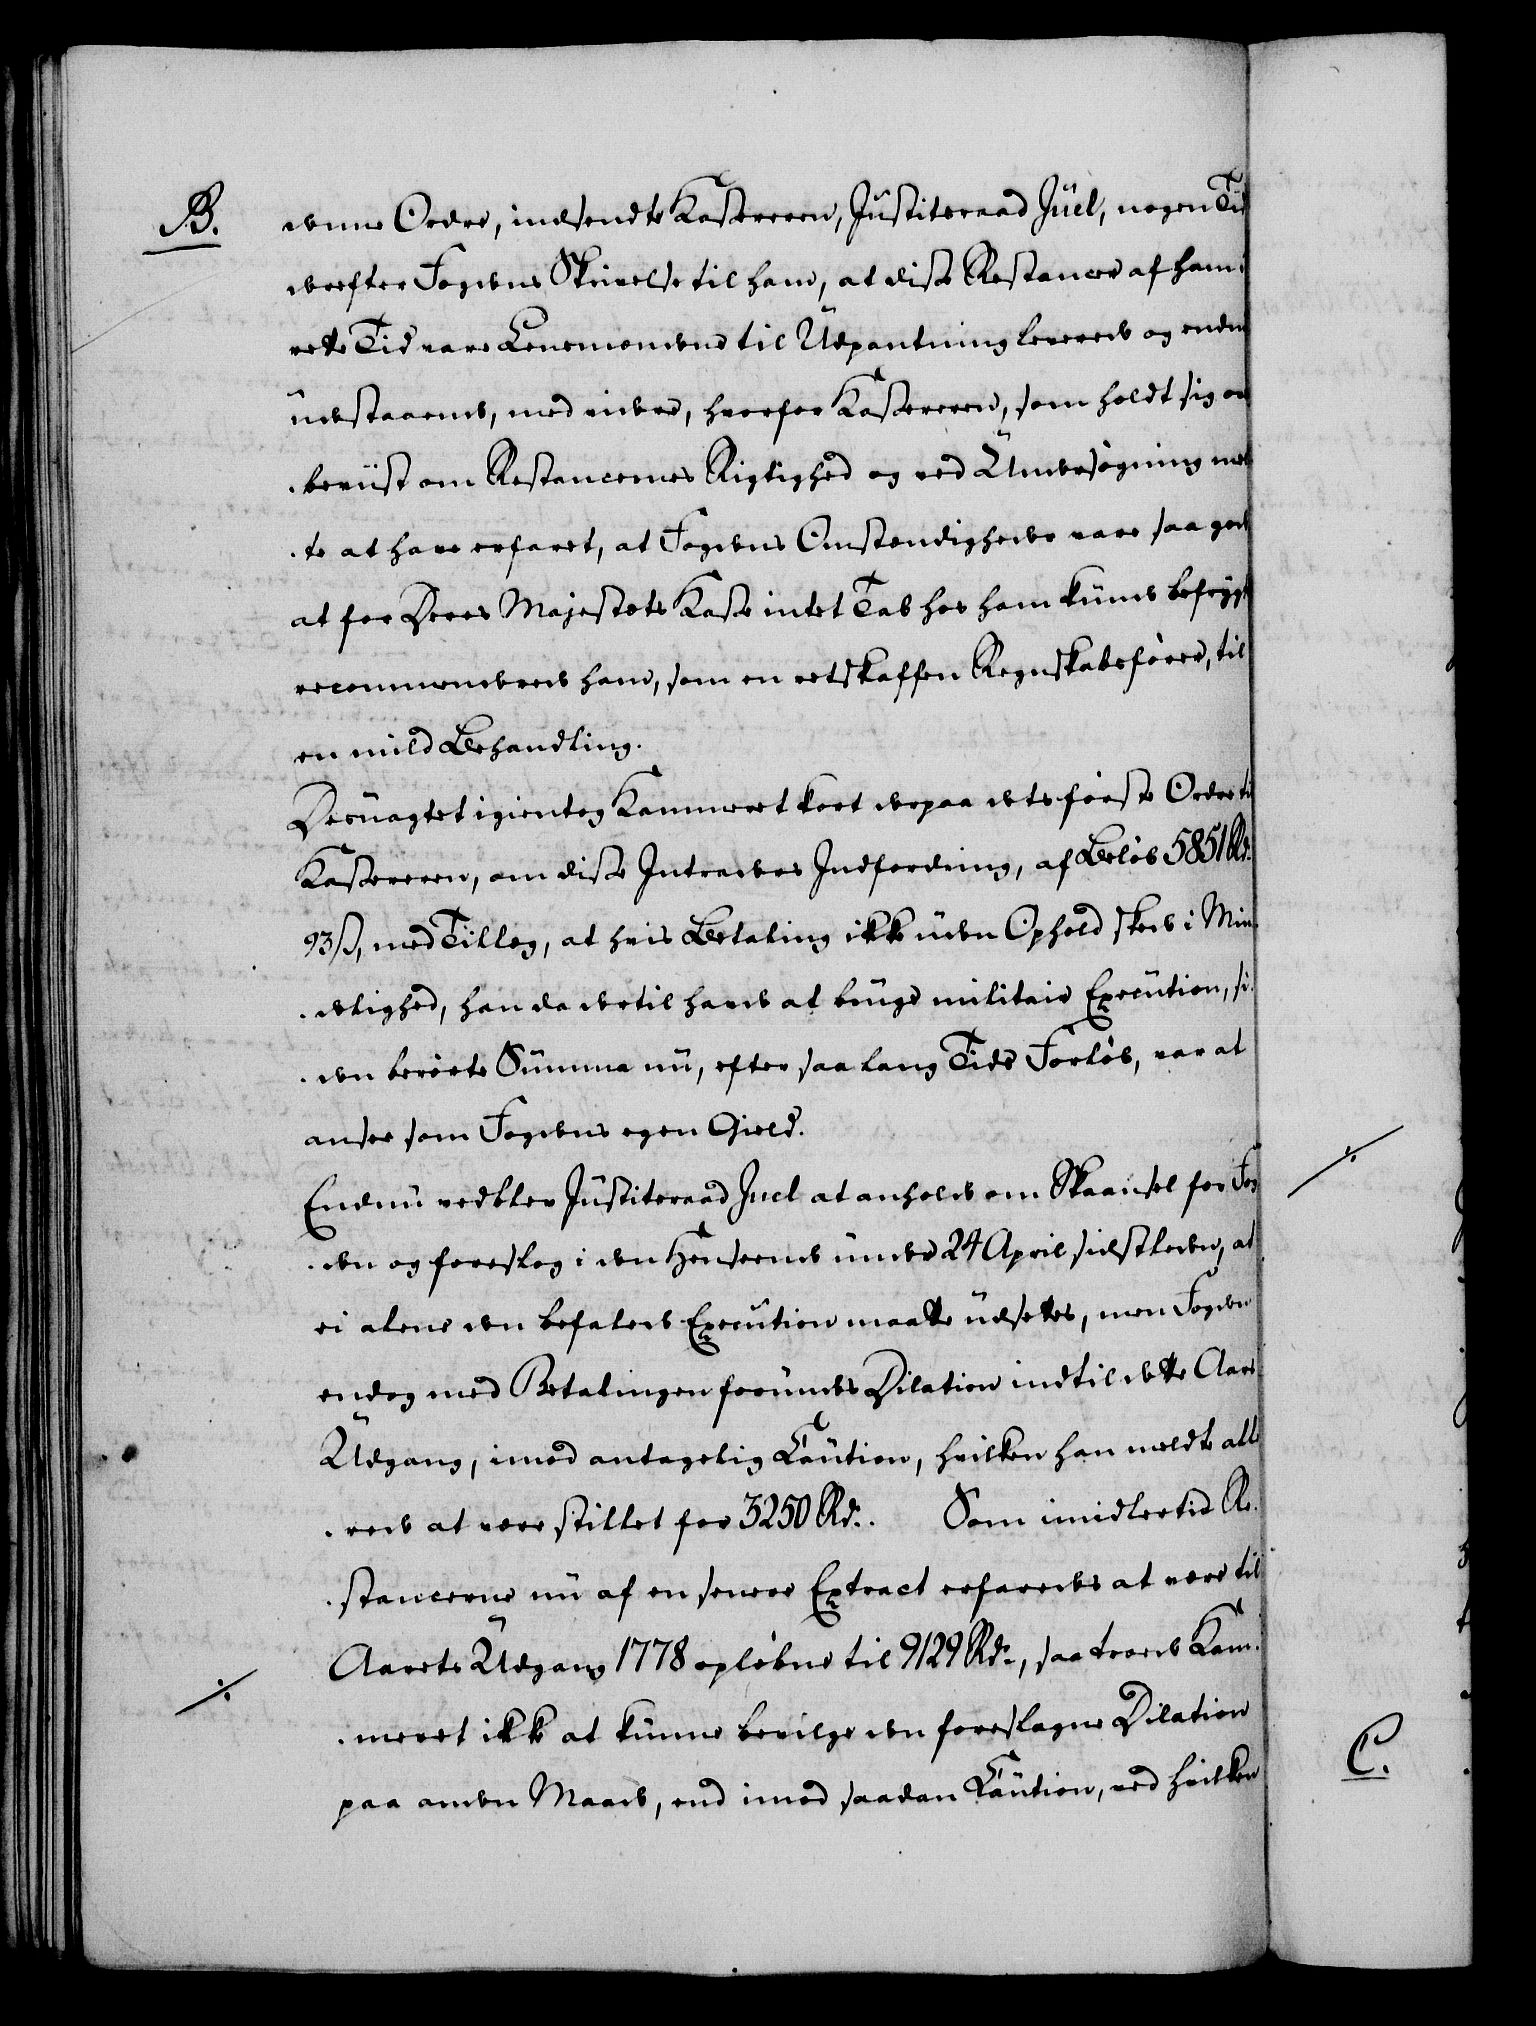 B.
denne Ordre, indsendte Kassereren, Justiteraad Juel, nogen Tid
derefter Fogdens Skrivelse til ham, at disse Restancer af ham i
rette Tid vare Lensmændene til Udpantning leverede og endnu
udstaaende, med videre, hvorfor Kassereren, som holdt sig over
-beviist om Restancernes Rigtighed og ved Undersøgning meen
-te at have erfaret, at Fogdens Omstændigheder vare saa gode
at for Deres Majestets Kasse intet Tab hos ham kunde befrygtes
recommenderede ham, som en retskaffen Regnskabsfører, til
en mild Behandling.
Desuagtet igientog Kammeret kort derpaa dets første Ordre til
Kassereren, om disse Intraders Indfordring, af Beløb 5851 Rd.
93 ß, med Tillæg, at hvis Betaling ikke uden Ophold skede i Min-
-delighed, han da dertil havde at bruge militair Execution, si-
-den berørte Summa nu, efter saa lang Tids Forløb, var at
ansee som Fogdens egen Gield.
Endnu vedblev Justiteraad Juel at anholde om Skaansel for Fog
-den og foreslog i den Henseende under 24 April sidstleden, at
ei alene den befalede Execution maatte udsættes, men Fogden
endog med Betalingen forundes Dilation indtil dette Aars
Udgang, imod antagelig Caution, hvilken han meldte alle
-rede at være stillet for 3250 Rd. Som imidlertid Re-
-stancerne nu af en senere Extract erfaredes at være til
Aarets Udgang 1778 opløbne til 9129 Rd., saa troede Kam-
-meret ikke at kunne bevilge den foreslagne Dilation
paa anden Maade, end imod saadan Caution, ved hvilken
C.